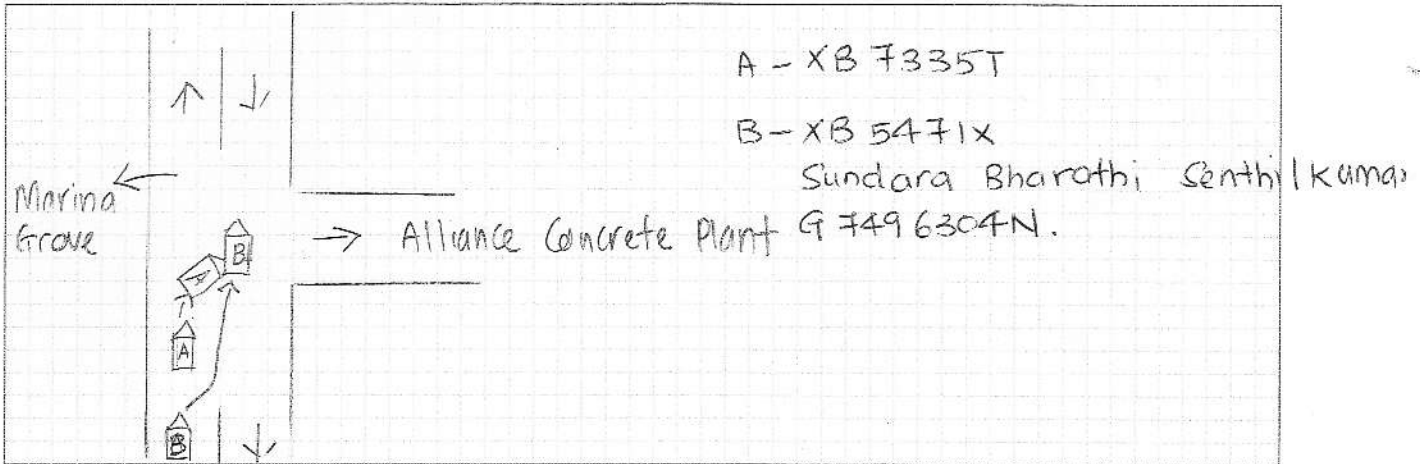 A - XB 7335T
B - XB 5471X
Sundara Bharathi Senthilkumar
G 7496304N.
Marina
Grove
Alliance Concrete Plant
B
A
A
B